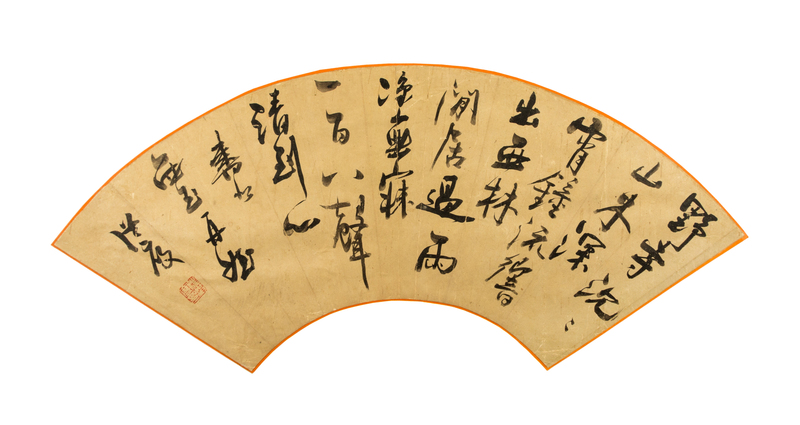 野寺沉〻
山木深
宵鐘流響
出西林
閒居過雨
淨無寐
一百八聲
清到心